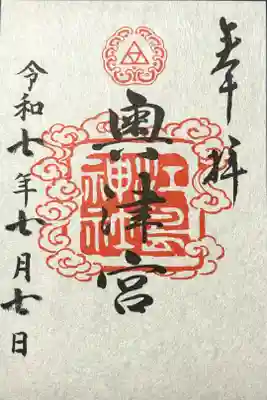 奉拝
奥津宮
江島神社
令和七年七月七日